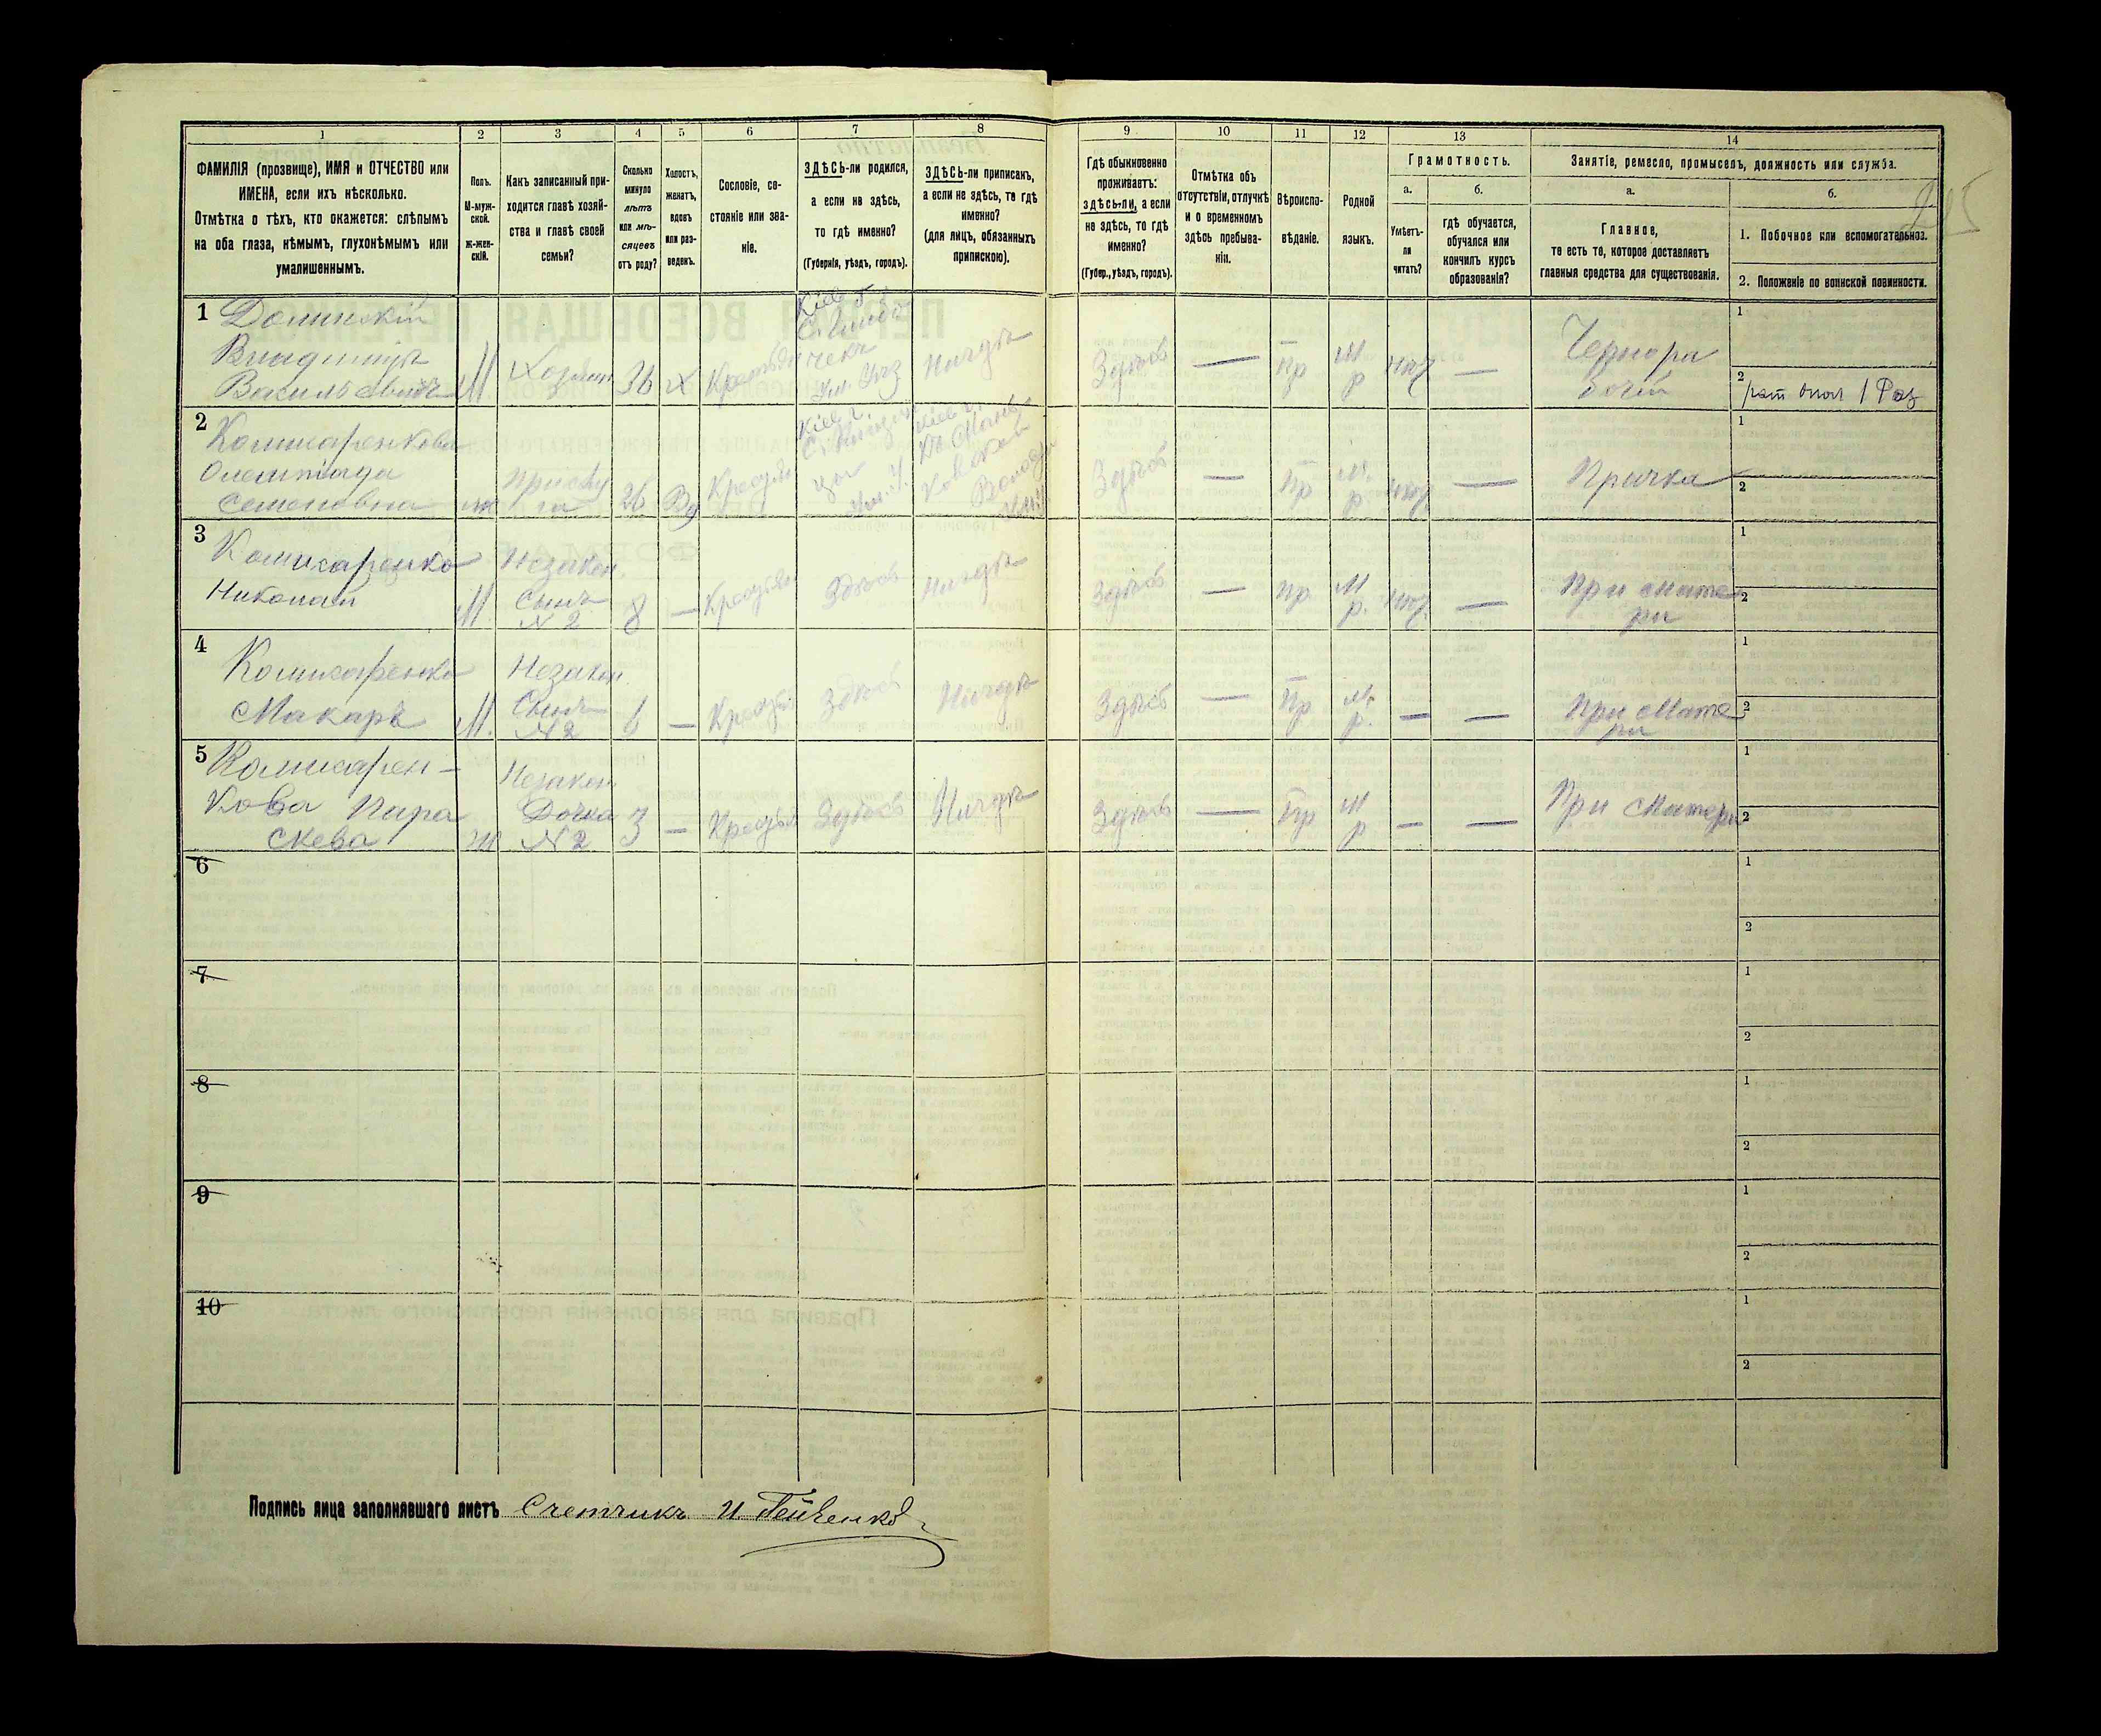 1
2
3
4
5
6
7
8
9
10
11
12
13
14
ФАМИЛІЯ (прозвище), ИМЯ и ОТЧЕСТВО или
ИМЕНА, если ихъ нѣсколько.
Отмѣтка о тѣхъ, кто окажется: слѣпымъ
на оба глаза, нѣмымъ, глухонѣмымъ или
умалишеннымъ.
Полъ.
М-муж-
ской.
Ж-жен-
скій.
Какъ записанный при-
ходится главѣ хозяй-
ства и главѣ своей
семьи?
Сколько
минуло
лѣтъ
или мѣ-
сяцевъ
отъ роду?
Холостъ,
женатъ,
вдовъ
или раз-
веденъ.
Сословіе, со-
стояніе или зва-
ніе.
ЗДѢСЬ-ли родился,
а если не здѣсь,
то гдѣ именно?
(Губернія, уѣздъ, городъ).
ЗДѢСЬ-ли приписанъ,
а если не здѣсь, то гдѣ
именно?
(для лицъ, обязанныхъ
припискою).
Гдѣ обыкновенно
проживаетъ:
здѣсь-ли, а если
не здѣсь, то гдѣ
именно?
(Губер., уѣздъ, городъ).
Отмѣтка объ
отсутствіи, отлучкѣ
и о временномъ
здѣсь пребыва-
ніи.
Вѣроиспо-
вѣданіе.
Родной
языкъ.
Грамотность.
а.
Умѣетъ-
ли
читать?
б.
гдѣ обучается,
обучался или
кончилъ курсъ
образованія?
Занятіе, ремесло, промыселъ, должность или служба.
а.
Главное,
то есть то, которое доставляетъ
главныя средства для существованія.
б.
1. Побочное или вспомогательное.
2. Положеніе по воинской повинности.
1 Долинскій
Владиміръ
Васильевичъ
М
Хозяин
36
Х
Крестьян
Кіев г.
Нигдѣ
Здѣсь
—
Пр
М
р
нѣт
—
Чернора
бочій
1
2
рат опол 1 Раз
2
Комисаренкова
Олемпіяда
Семеновна
ж
Прислу
га
26
Вд
Крестьян
Кіев г.
Кіев г.
Здѣсь
—
Пр
М.
р.
нѣт
—
Прачка
1
2
3
Комисаренко
Николай
М.
Незакон.
Сынъ
N 2
8
—
Крестьян
Здѣсь
Нигдѣ
Здѣсь
—
Пр
М
р.
нѣт
—
При мате
ри
1
2
4
Комисаренко
Макаръ
М.
Незакон.
Сынъ
N 2
6
—
Крестьян
Здѣсь
Нигдѣ
Здѣсь
—
Пр
М.
р.
—
—
При Мате
ри
1
2
5
Комисарен-
кова Пара
скева
Ж
Незакон
Дочка
N 2
3
—
Крестьян
Здѣсь
Нигдѣ
Здѣсь
—
Пр
М
р
—
—
При Матери
1
2
6
1
2
7
1
2
8
1
2
9
1
2
10
1
2
Подпись лица заполнявшаго листъ Счетчикъ И. Гейченко